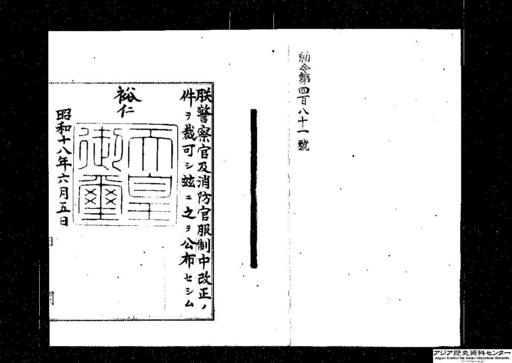 勅令第四百八十一號
朕警察官及消防官服制中改正ノ
件ヲ裁可シ玆ニ之ヲ公布セシム
裕仁
天皇
御璽
昭和十八年六月五日
アジア歴史資料センター
Japan Center for Asian Historical Records